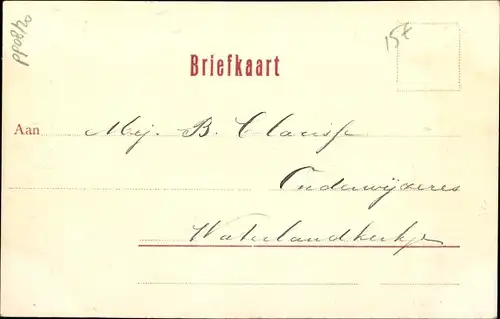 PP08/20
15€
Briefkaart
Aan Mej. B. Clarisse
Onderwijzeres
Waterlandkerkje